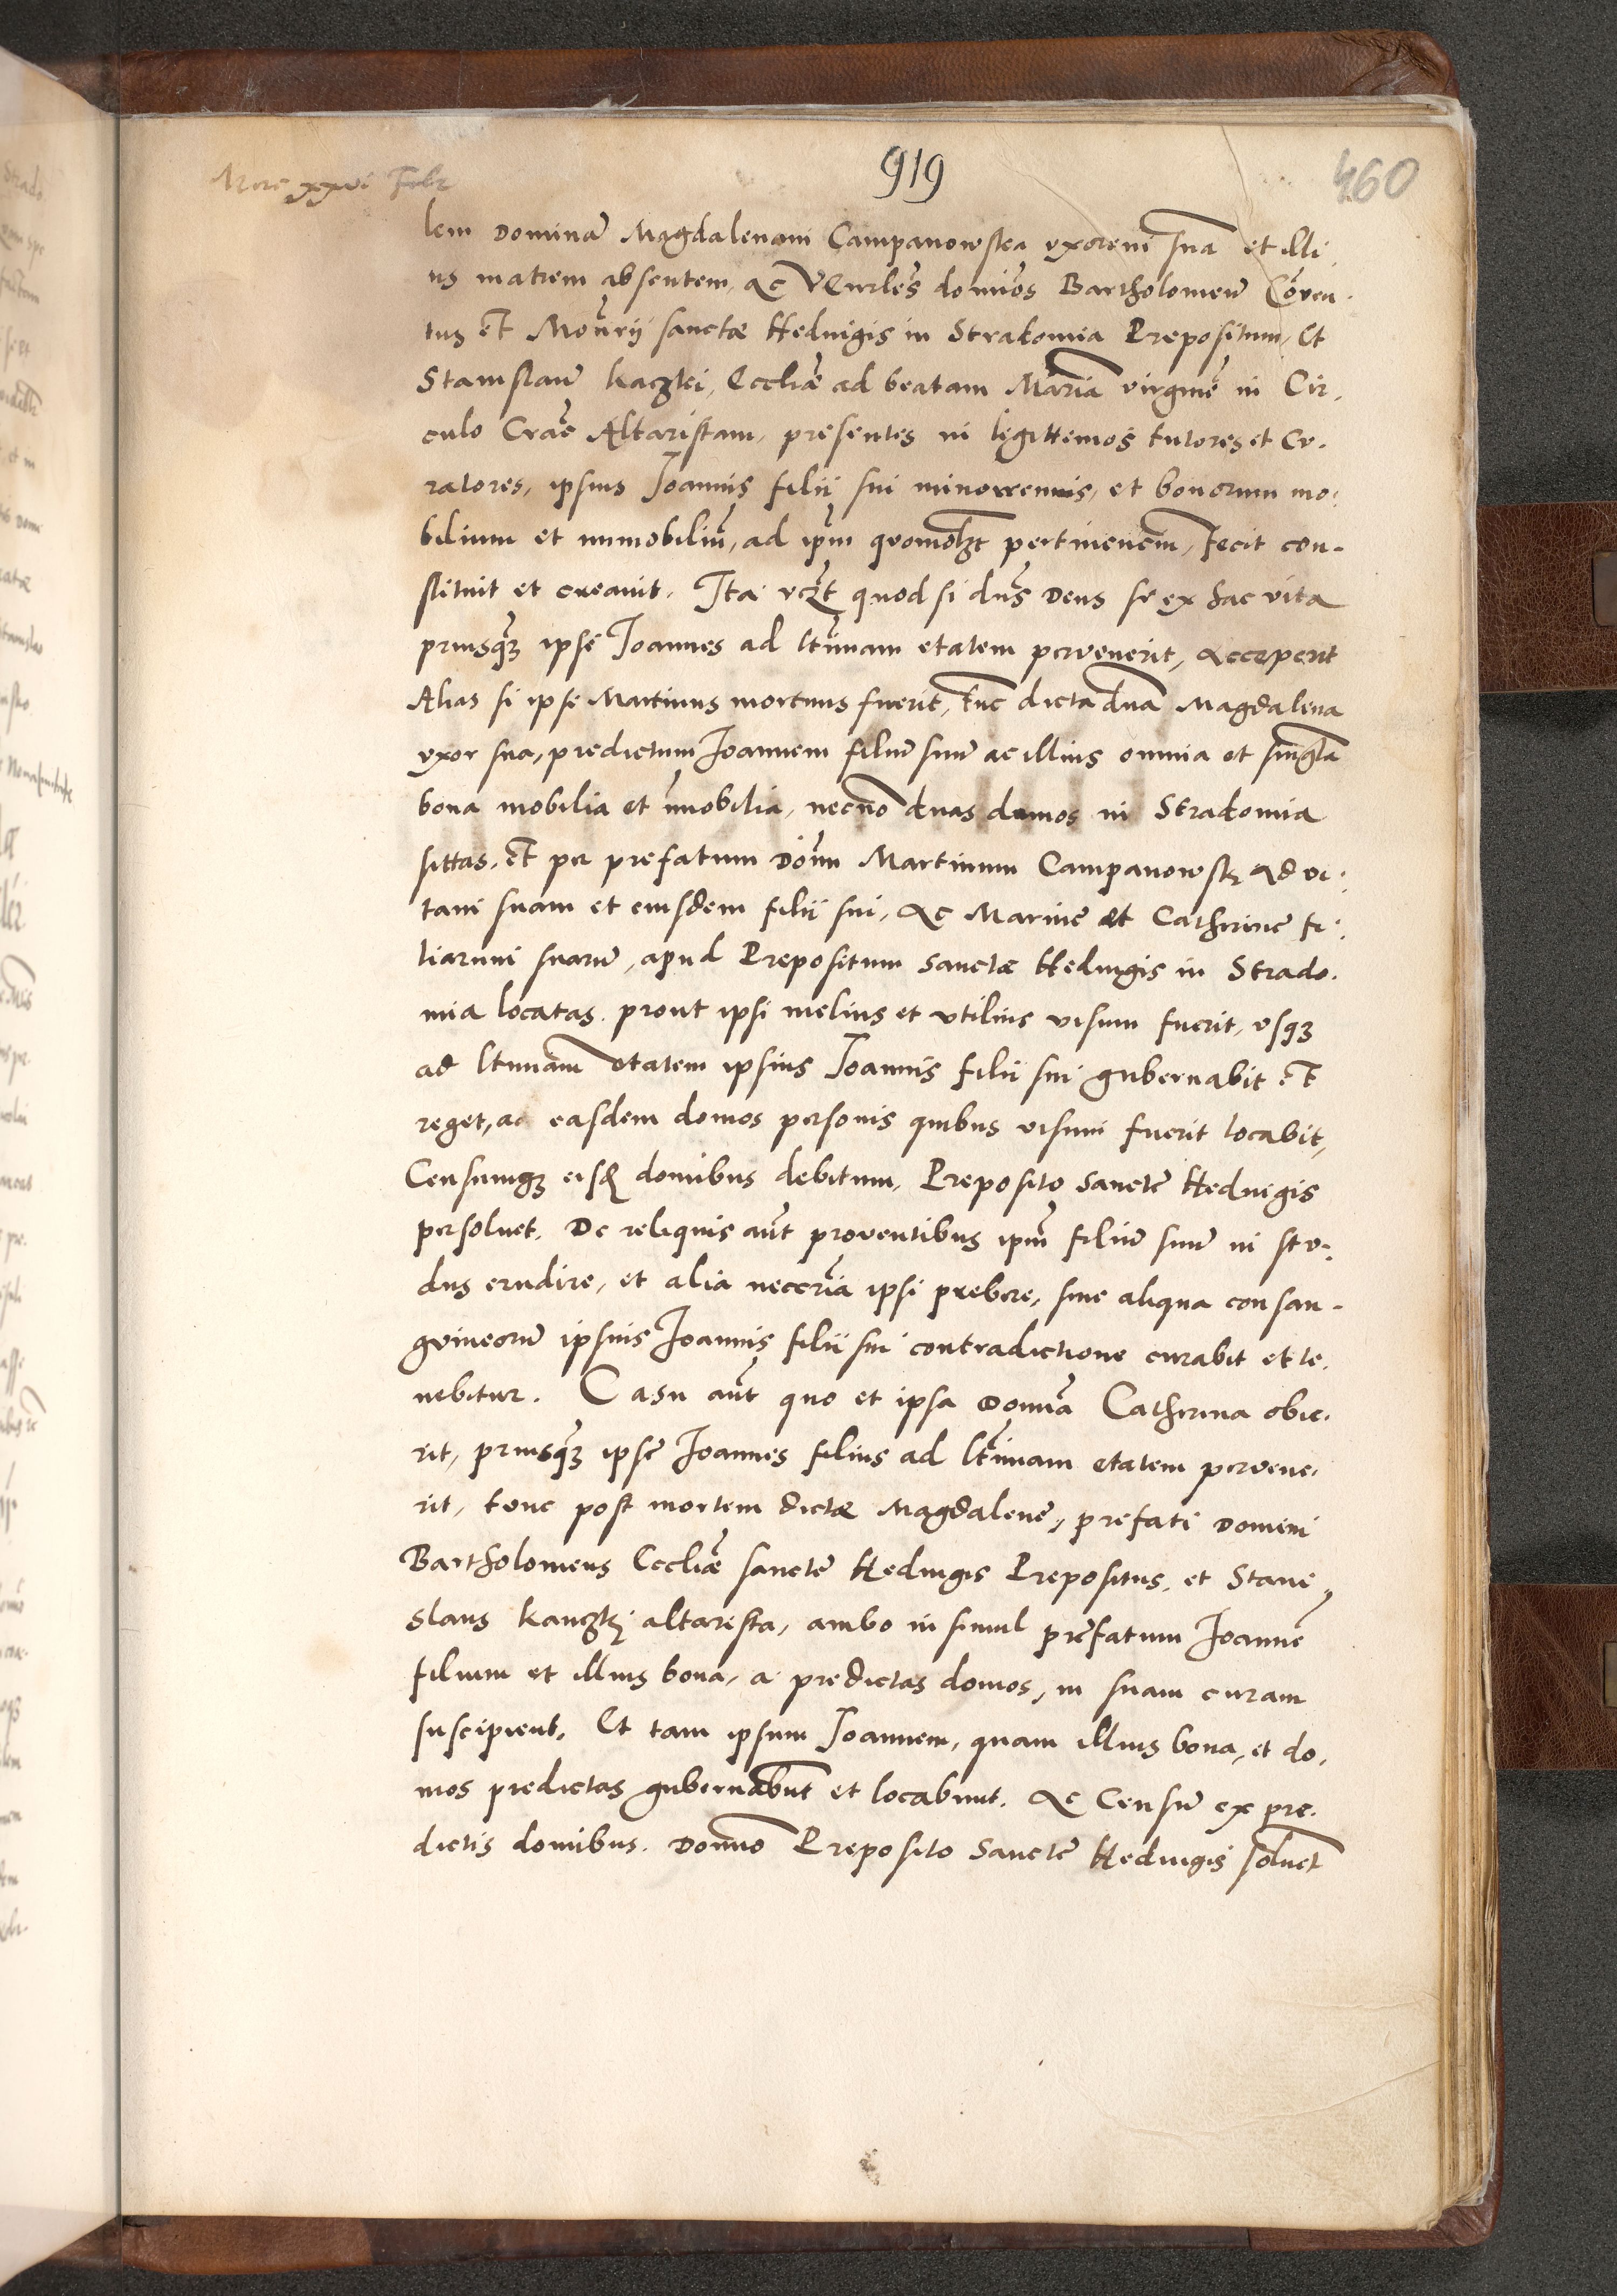 919
460
Merc xxvi Febr
lem Dominā Magdalenam Campanowska uxorem suā et illi
us matrem absentem, ac Venrles domīos Bartholomeū Cōven.
tus et Moñrij sanctæ Heduigis in Stradomia Prepositum, Et
Stanislaū Kaczki, Eccliæ ad beatam Mariā virginē in Cir.
culo Crāc Altaristam, presentes in legittemos tutores et Cu.
ratores, ipsius Joannis filii sui minorennis, et bonorum mo.
bilium et immobiliū, ad ipm quomolzt pertinencm, fecit con-
stituit et creauit. Ita vczt quod si dns Deus se ex hac vita
priusq̃z ipse Joannes ad ltimam etatem pervenerit, acceperit
Alias si ipse Martinus mortuus fuerit, tūc dicta dna Magdalena
uxor sua, predictum Joannem filiū suū ac illius omnia et singla
bona mobilia et īmobilia, necno duas domos in Stradomia
sittas, et per prefatum Donm Martinum Campanowskj ad vi.
tam suam et eiusdem filii sui, ac Marine et Catherine fi.
liarum suarū, apud Prepositum sanctæ Heduigis in Strado.
mia locatas. prout ipsi melius et utilius visum fuerit, usqz
ad ltimam etatem ipsius Joannis filii sui gubernabit et
reget, ac easdem domos personis quibus visum fuerit locabit,
Censumqz eisd domibus debitum, Preposito Sanctę Heduigis
persoluet. De reliquis aūt proventibus ipm filiū suū in stu.
dus erudire, et alia neccria ipsi prebere, sine aliqua consan-
guineorū ipsius Joannis filii sui contradictione curabit et te.
nebitur. Casu aūt quo et ipsa Domīa Catherina obie.
rit, priusq̃z ipse Joannes filius ad ltimam etatem pervene.
rit, tunc post mortem dictæ Magdalenę, prefati Domini
Bartholomeus Eccliæ sanctę Heduigis Prepositus, et Stani
slaus Kanczkj altarista, ambo in simul prefatum Joannē
filium et illius bona, a predictas domos, in suam curam
suscipient, Et tam ipsum Joannem, quam illius bona, et do.
mos predictas gubernabūt et locabunt. Ac Censū ex pre.
dictis domibus. Domīo Preposito Sanctę Heduigis soluet